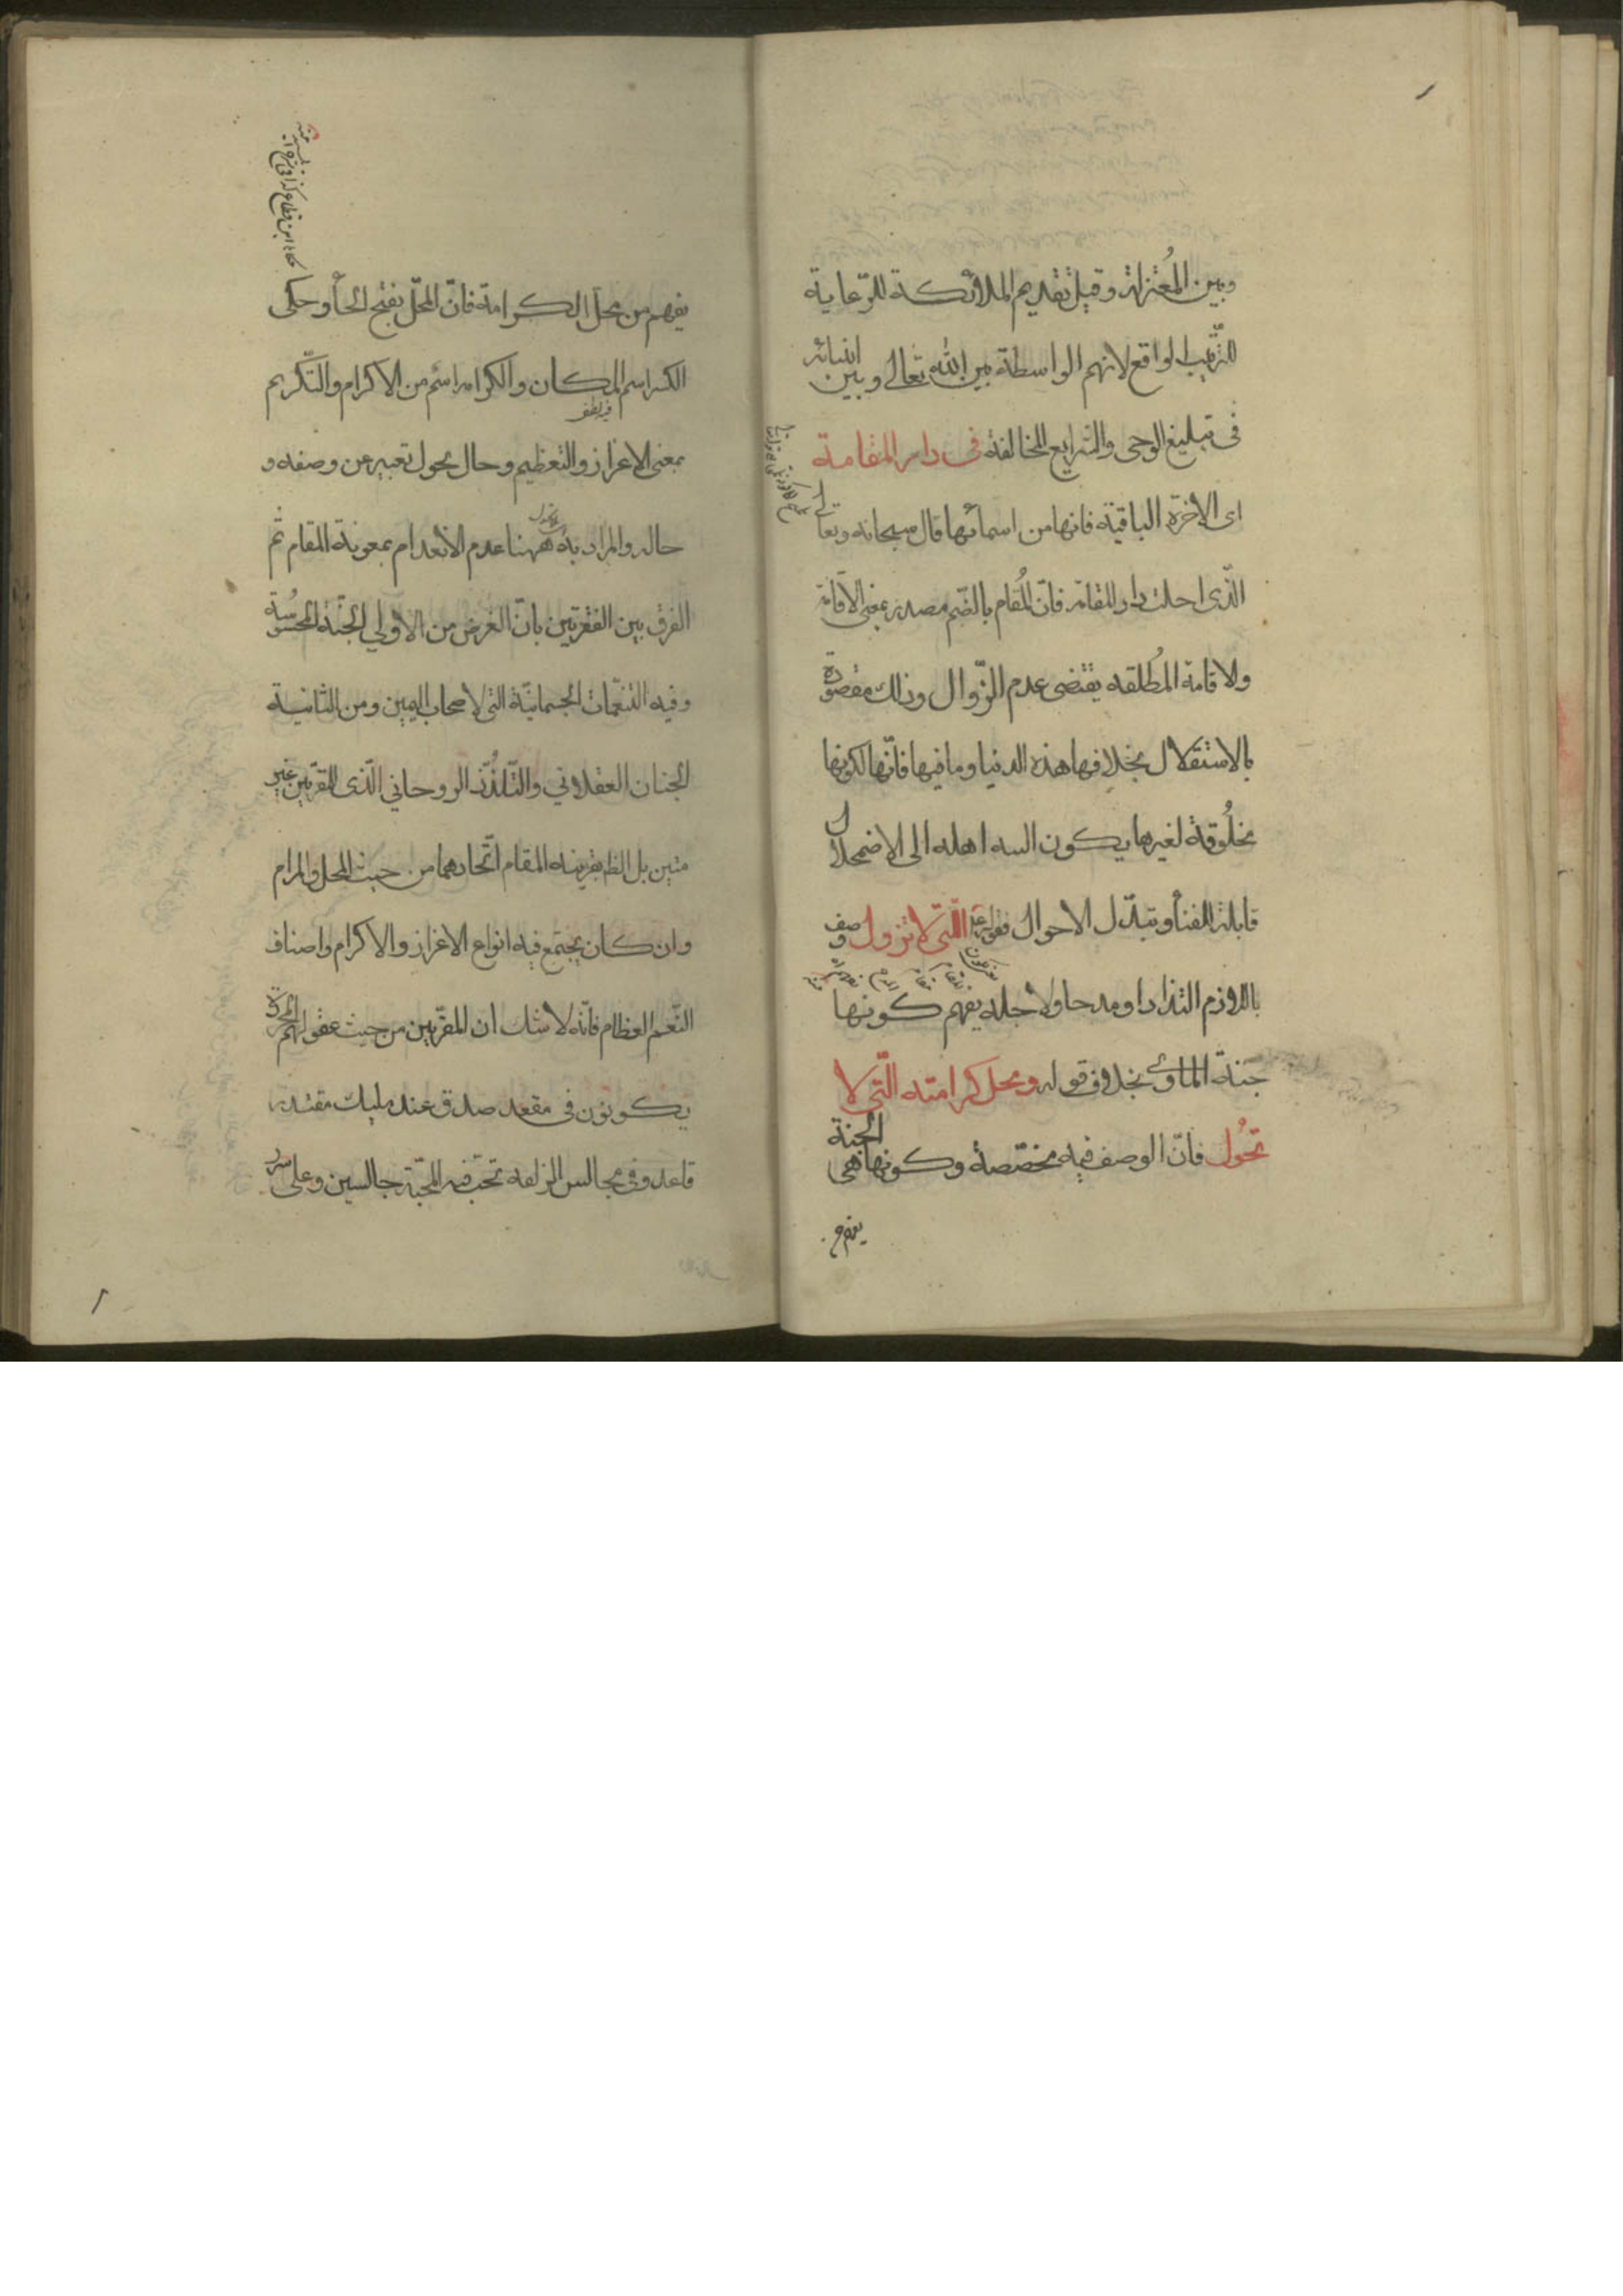 وبين المُعتزلة وقيل تقديم الملائكة للرّعاية
للترّتيب الواقع لانهم الواسطة بين الله تعالى وبين انبيائه
فى تبليغ الوحى والشرايع المخالفة فى دار المقامة
اى الاخرة الباقية فانها من اسمائها قال سبحانه وتعالى
الّذى احلنا دار المقامة فانّ المُقام بالضّم مصدر بمعنى الاقامة
ولاقامة المُطلقه يقتضى عدم الزّوال وذلك مقصودة
بالاستقلال بخلافها هذه الدنيا وما فيها فانّها لكونها
مخلُوقة لغيرها يكون اهله الى الاضمحلال
قابلة للفنأ وتبدّل الاحوال فقوله الّتى لا تزول وصف
باللازم ومدحا ولاجله يفهم كونها
جنة المأوى بخلاف قوله ومحل كرامته الّتى لا
تحُول فانّ الوصف فيه مخصّصة وكونها هى الجنة
يفهم
يفهم من محلّ الكرامة فانّ المحلّ بفتح الحأ وحكى
الكسر اسم المكان والكرامه اسم من الاكرام والتّكريم
بمعنى الاعزاز والتعظيم وحال يحول تعبير عن وصفه و
حاله والمراد به ههنا عدم الانعدام بمعونة المقام ثم
الفرق بين الفقرتين بانّ الغرض من الاولى الجنّة المحسُوسة
وفيه التنعّمات الجسمانيّة التى لاصحاب اليمين ومن الثانية
الجنان العقلانى والتّلذُّذ الروحانى الّذى للمقرّبين غير
متين بل الظ بقرينه المقام اتّحادهما من حيث المحل والمرام
وان كان يجتمع فيه انواع الاعزاز والاكرام واصناف
النّعم العظام فانّه لا شك ان المقرّبين من حيث عقولهم المجرّدة
يكونون فى مقعد صدق عند مليك مقتدر
قاعد وفى مجالس الزلفه تحت قبة المحبّة جالسين وعلى سرر